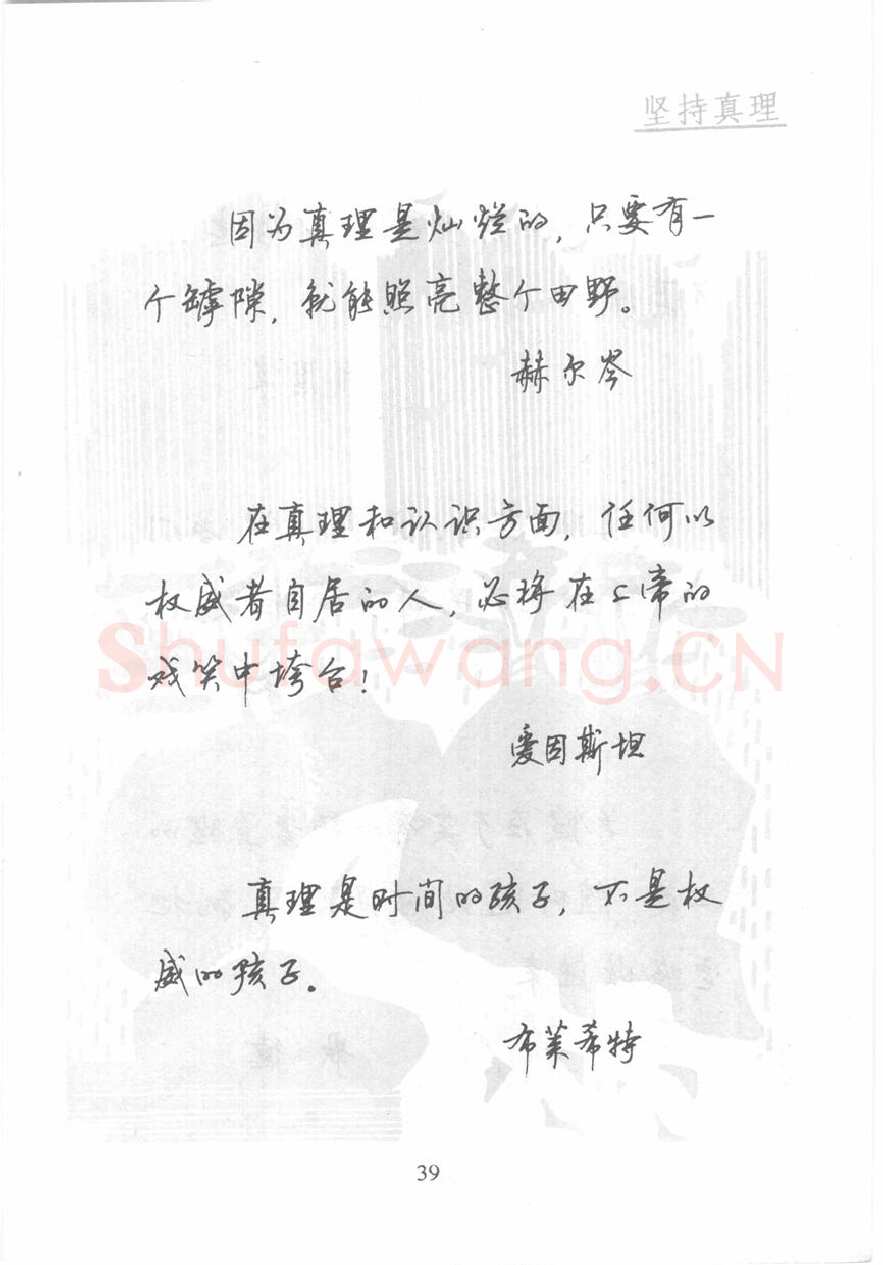 坚持真理
因为真理是灿烂的，只要有一
个罅隙，就能照亮整个田野。
赫尔岑
在真理和认识方面，任何以
权威者自居的人，必将在上帝的
戏笑中垮台！
Shufawang.CN
爱因斯坦
真理是时间的孩子，不是权
威的孩子。
布莱希特
39